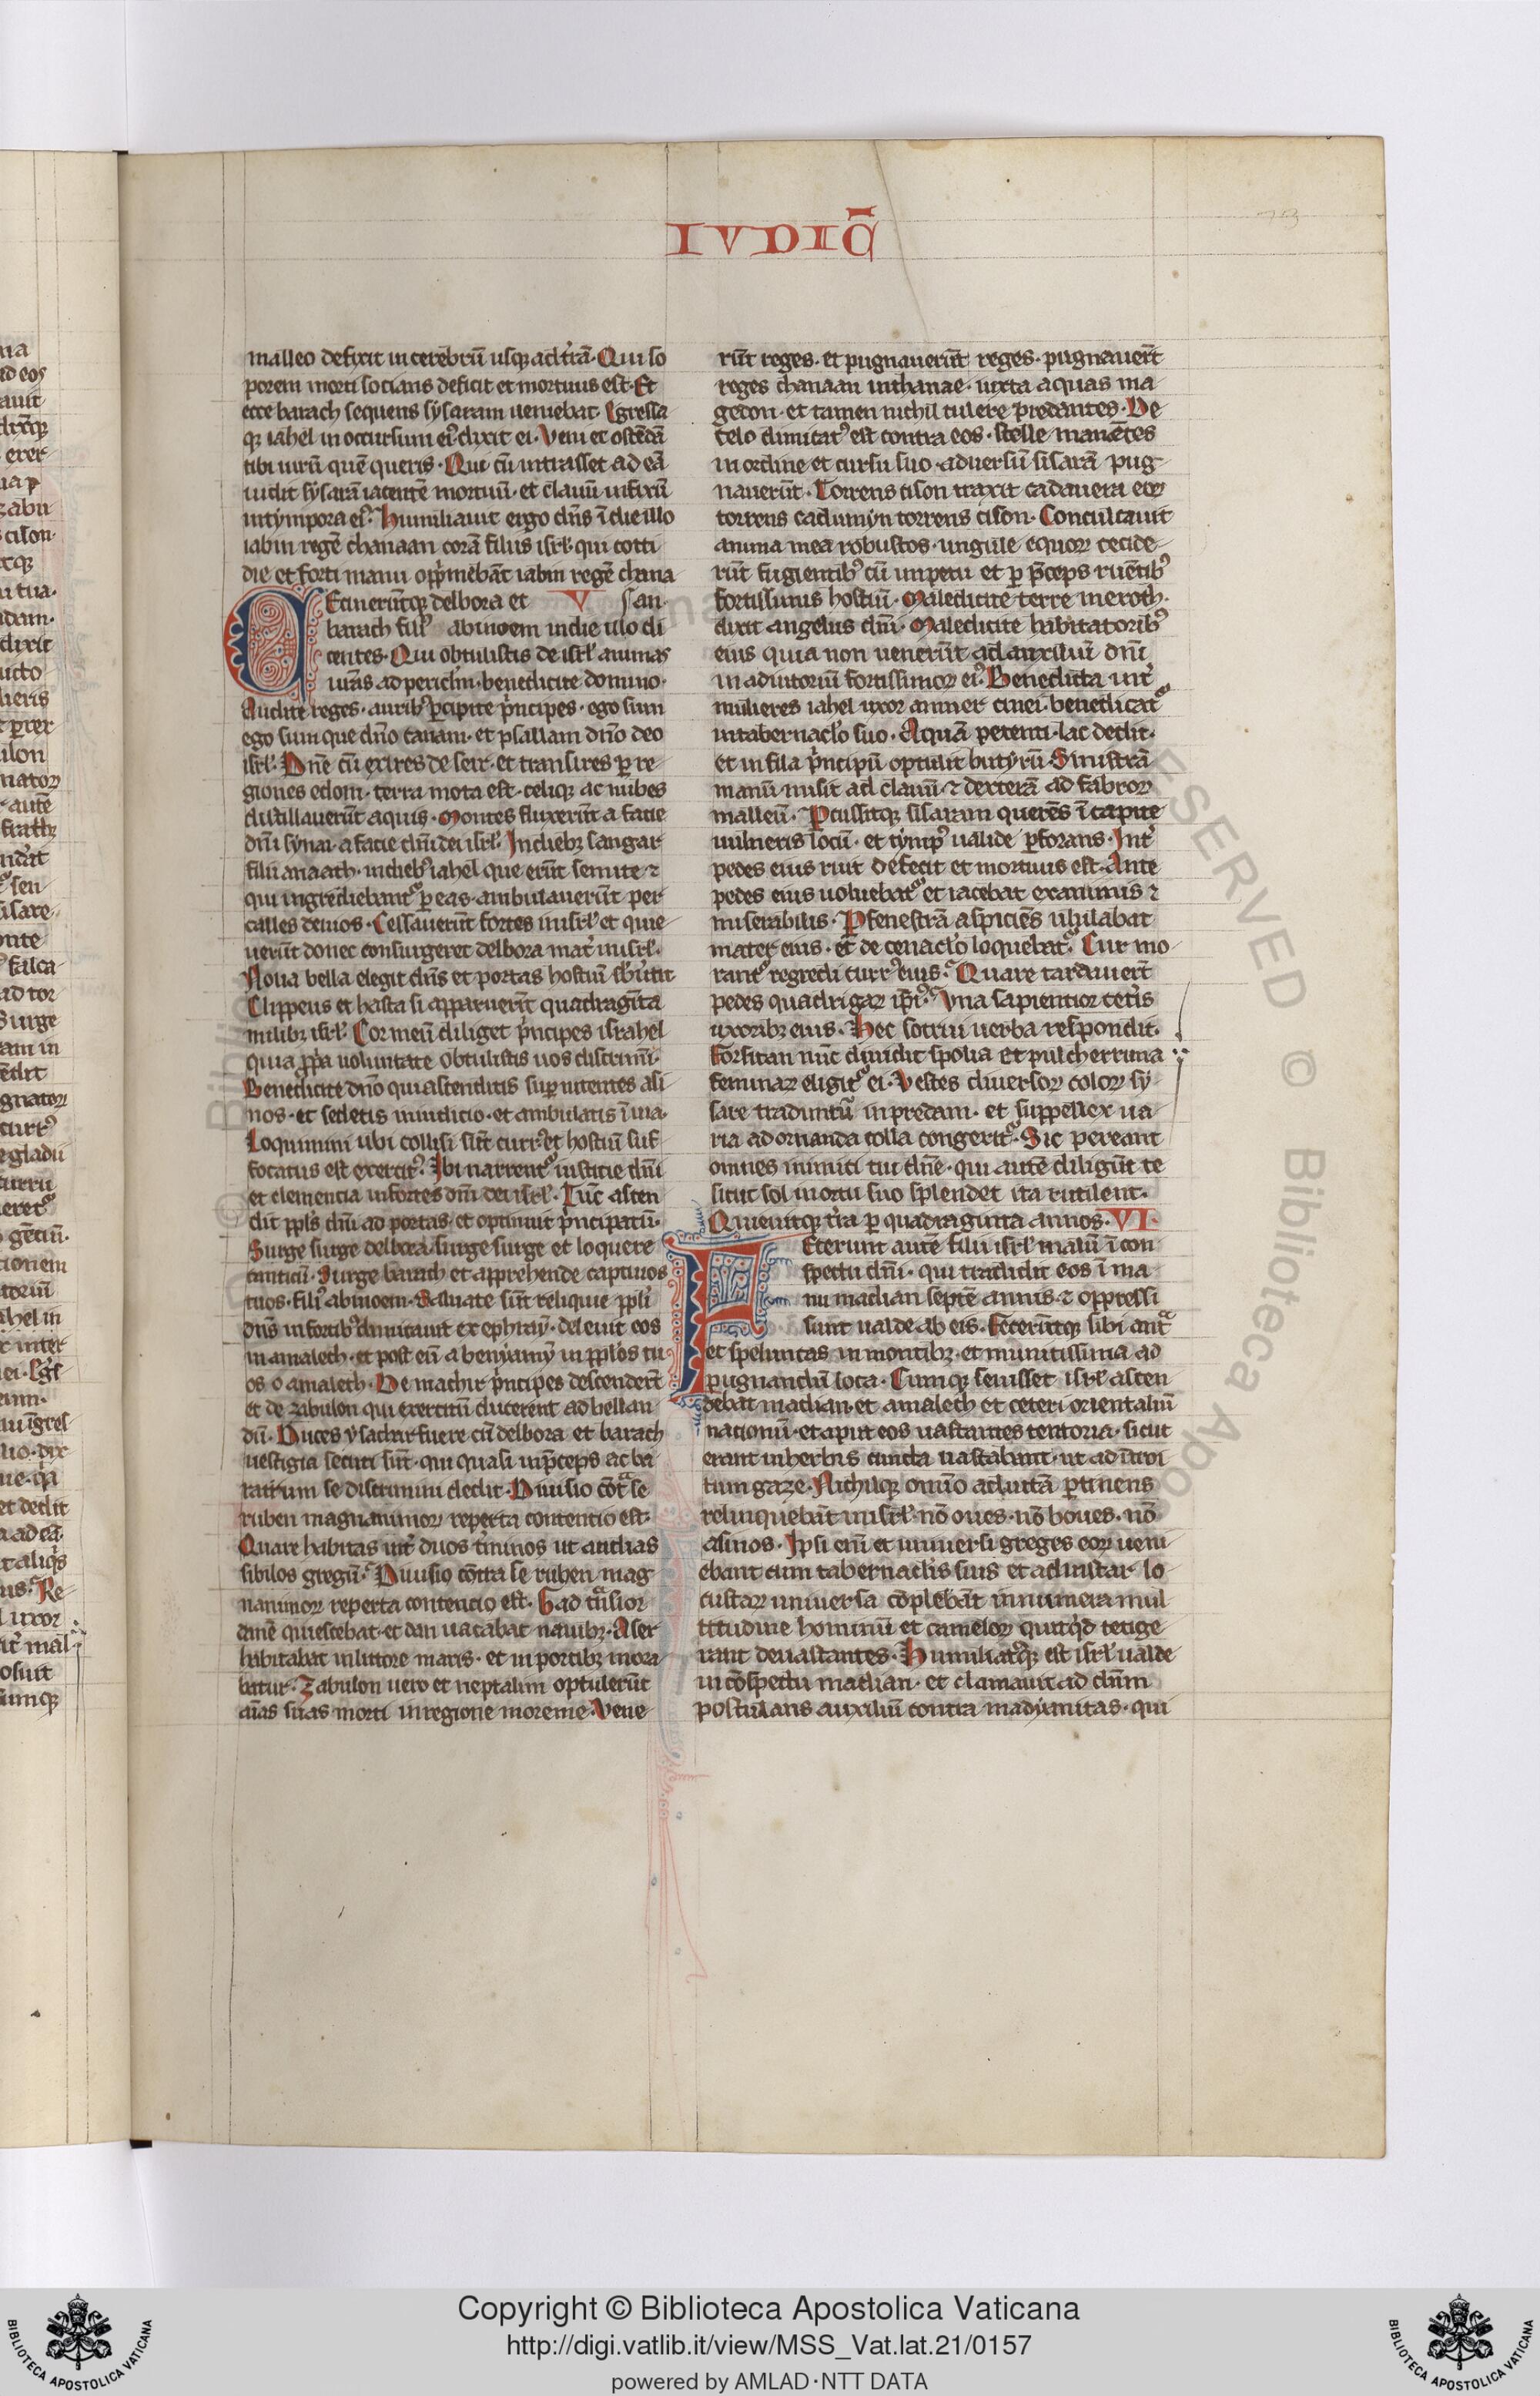 IVDIC̄
malleo defixit in cerebrū usq; ad t̓rā. Qui so
porem morti socians deficit et mortuus est. Et
ecce barach sequens sysaram ueniebat. Egressa
q; iahel in occursum ei᷒ dixit ei. Veni et ostēdā
tibi uirū quē queris. Qui cū intrasset ad eā
uidit sysarā iacentē mortuū. et clauū infixū
in tympora ei᷒. Humiliauit ergo dn̄s ī die illo
iabin regē chanaan corā filiis isrl̓. qui cotti
die et forti manu opp̓mebāt iabin regē chana
Ecinerūtq; delbora et V an.
barach fili᷒ abinoem in die illo di
centes. Qui obtulistis de isrl̓ animas
ur̄as ad pericl̓m. benedicite domino.
Audite reges. aurib᷒ ꝑcipite p̓ncipes. ego sum
ego sum que dn̄o canam. et psallam dn̄o deo
isrl̓. Dn̄e cū exires de seir. et transires ꝑ re
giones edom. terra mota est. celiq; ac nubes
distillauerūt aquis. Montes fluxerūt a facie
dn̄i synai a facie dn̄i dei isrl̓. In dieb; sangar
filii anaath. in dieb᷒ iahel que erūt semite ⁊
qui ingrediebant᷑ ꝑ eas. ambulauerūt per
calles deuios. Cessauerūt fortes in isrl̓ et quie
uerūt donec consurgeret delbora mat̓ in isrl̓.
Noua bella elegit dn̄s et portas hostiū sb̓uertit
Clippeus et hasta si apparuerīt quadragīta
milib; isrl̓. Cor meū diliget p̓ncipes israhel
quia ꝓp̓a uoluntate obtulistis uos discrimī.
Benedicite dn̄o qui ascenditis suꝑ nitentes asi
nos. et sedetis in iudicio. et ambulatis ī uia.
Loquimini ubi collisi sūt curr᷒ et hostiū suf
focatus est exercit᷒. Ibi narrent᷑ iusticie dn̄i
et clemencia in fortes dn̄i dei isrl̓. Tūc ascen
dit ppl̓s dn̄i ad portas. et optinuit p̓ncipatū.
Surge surge delbora. surge surge et loquere
canticū. Surge barach et apprehende captiuos
tuos. fili᷒ abinoem. Saluate sūt reliquie ppl̓i
dn̄s in fortib᷒ dimicauit ex ephraȳ. deleuit eos
in amalech. et post eū a benyamȳ in ppl̓os tu
os o amalech. De machir p̓ncipes descenderūt
et de zabulon qui exercitū ducerent ad bellan
dū. Duces ysachar fuere cū delbora et barach
uestigia secuti sūt. qui quasi in p̄ceps ac ba
ratrum se discrimini dedit. Diuisio cōt̓ se
ruben magnanimoꝝ reperta contentio est.
Quare habitas int̓ duos t̓minos ut audias
sibilos gregū. Diuisio cōtra se ruben mag
nanimoꝝ reperta contencio est. Gad t̓nsior
danē quiescebat. et dan uacabat nauib;. Aser
habitabat in littore maris. et in portib; mora
batur. Zabulon uero et neptalim optulerūt
aīas suas morti in regione morome. Vene
rūt reges. et pugnauerūt reges. pugnauerūt
reges chanaan in thanac. iuxta aquas ma
gedon. et tamen nichil tulere predantes. De
celo dimicat᷒ est contra eos. stelle manētes
in ordine et cursu suo. aduersū sisarā pug
nauerūt. Torrens cison traxit cadauera eoꝝ
torrens cadumyn torrens cison. Conculcauit
anima mea robustos. ungule equoꝝ cecide
rūt fugientib᷒ cū impetu et ꝑ p̄ceps ruētib᷒
fortissimis hostiū. Maledicite terre meroth.
dixit angelus dn̄i. Maledicite habitatorib᷒
eius quia non uenerūt ad auxiliū dn̄i
in adiutoriū fortissimoꝝ ei᷒. Benedicta int̓
mulieres iahel uxor aminer cinei. benedicat᷑
in tabernacl̓o suo. Aquā petenti. lac dedit.
et in fila p̓ncipū optulit butyrū. Sinistrā
manū misit ad clauū. ⁊ dexterā ad fabroꝝ
malleū. Ꝑcussitq; sisaram querēs ī capite
uulneris locū. et tymp᷒ ualide ꝑforans. Int̓
pedes eius ruit defecit et mortuus est. Ante
pedes eius uoluebat᷑ et iacebat exanimis ⁊
miserabilis. Ꝑ fenestrā aspiciēs ululabat
mater eius. et de cenacl̓o loquebat᷑. Cur mo
rant᷑ regredi curr᷒ eius. Quare tardauerūt
pedes quadrigaꝝ ip̄i᷒. Vna sapientior cet̓is
uxorib; eius. Hec socrui uerba respondit.
Forsitan nūc diuidit spolia et pulcherrima
feminaꝝ eligit᷑ ei. Vestes diuersoꝝ coloꝝ sy
sare traduntū in predam. et suppellex ua
ria ad ornanda colla congerit᷑. Sic pereant
omnes inimici tui dn̄e. qui autē diligūt te
sicut sol in ortu suo splendet ita rutilent.
Quieuitq; t̓ra ꝑ quadraginta annos. VI.
Fecerunt autē filii isrl̓ malū ī con
spectu dn̄i. qui tradidit eos ī ma
nu madian septē annis. ⁊ oppressi
sunt ualde ab eis. Fecerūtq; sibi ant̓
et speluncas in montib;. et munitissima ad
pugnandū loca. Cumq; seuisset isrl̓ ascen
debat madian. et amalech et ceteri orientaliū
nationū. et aput eos uastantes tentoria. sicut
erant in herbis cuncta uastabant. ut ad ītroi
tum gaze. Nichilq; omīo ad uitā ꝑtinens
relinquebāt in isrl̓. nō oues. nō boues. nō
asinos. Ipsi enī et uniuersi greges eoꝝ ueni
ebant cum tabernacl̓is suis et ad instar lo
custaꝝ uniuersa cōplebāt innumera mul
titudine hominū et cameloꝝ quicq̓d tetige
rant deuastantes. Humiliat᷒q; est isrl̓ ualde
in cōspectu madian. et clamauit ad dn̄m
postulans auxiliū contra madyanitas. qui
Copyright © Biblioteca Apostolica Vaticana
http://digi.vatlib.it/view/MSS_Vat.lat.21/0157
powered by AMLAD·NTT DATA
BIBLIOTECA APOSTOLICA VATICANA
BIBLIOTECA APOSTOLICA VATICANA